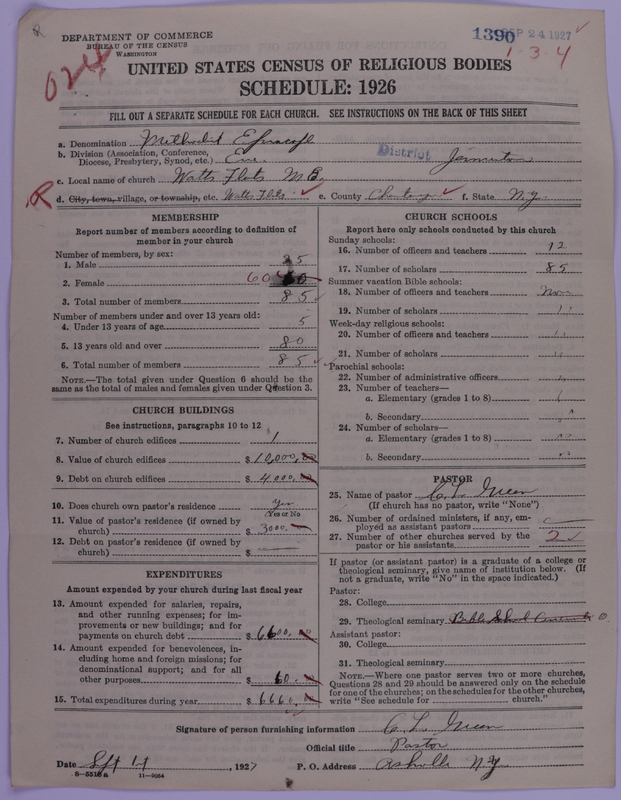 DEPARTMENT OF COMMERCE
BUREAU OF THE CENSUS
WASHINGTON
1390 SEP 24 1927
1-3-4
UNITED STATES CENSUS OF RELIGIOUS BODIES
SCHEDULE: 1926
FILL OUT A SEPARATE SCHEDULE FOR EACH CHURCH. SEE INSTRUCTIONS ON THE BACK OF THIS SHEET
a. Denomination Methodist
b. Division (Association, Conference, Diocese, Presbytery, Synod, etc.) Erie District
c. Local name of church Watts Flats M.E.
d. City, town, village, or township, etc. Watts Flats e. County f. State N.Y.
MEMBERSHIP
Report number of members according to definition of
member in your church
Number of members, by sex:
1. Male 25
2. Female 60
3. Total number of members 85
Number of members under and over 13 years old:
4. Under 13 years of age 5
5. 13 years old and over 80
6. Total number of members 85
NOTE.—The total given under Question 6 should be
same as the total of males and females given under Question 3.
CHURCH BUILDINGS
See instructions, paragraphs 10 to 12
7. Number of church edifices 1
8. Value of church edifices $10,000.00
9. Debt on church edifices $4,000.00
10. Does church own pastor's residence Yes
(Yes or No)
11. Value of pastor's residence (if owned by
church) $3000.
12. Debt on pastor's residence (if owned by
church) $
EXPENDITURES
Amount expended by your church during last fiscal year
13. Amount expended for salaries, repairs,
and other running expenses; for im-
provements or new buildings; and for
payments on church debt $6600.00
14. Amount expended for benevolences, in-
cluding home and foreign missions; for
denominational support; and for all
other purposes $60.
15. Total expenditures during year $6660.
CHURCH SCHOOLS
Report here only schools conducted by this church
Sunday schools:
16. Number of officers and teachers 12
17. Number of scholars 85
Summer vacation Bible schools:
18. Number of officers and teachers None
19. Number of scholars "
Week-day religious schools:
20. Number of officers and teachers "
21. Number of scholars "
Parochial schools:
22. Number of administrative officers "
23. Number of teachers—
a. Elementary (grades 1 to 8) "
b. Secondary "
24. Number of scholars—
a. Elementary (grades 1 to 8) "
b. Secondary "
PASTOR
25. Name of pastor C. L. Green
(If church has no pastor, write "None")
26. Number of ordained ministers, if any, em-
ployed as assistant pastors
27. Number of other churches served by the
pastor or his assistants 2
If pastor (or assistant pastor) is a graduate of a college or
theological seminary, give name of institution below. (If
not a graduate, write "No" in the space indicated.)
Pastor:
28. College
29. Theological seminary Bible School
Assistant pastor:
30. College
31. Theological seminary
NOTE.—Where one pastor serves two or more churches,
Questions 28 and 29 should be answered only on the schedule
for one of the churches; on the schedules for the other churches,
write "See schedule for church."
Signature of person furnishing information C. L. Green
Official title Pastor
Date Sept 14, 1927 P. O. Address Ashville N.Y.
8-5518a 11-9054